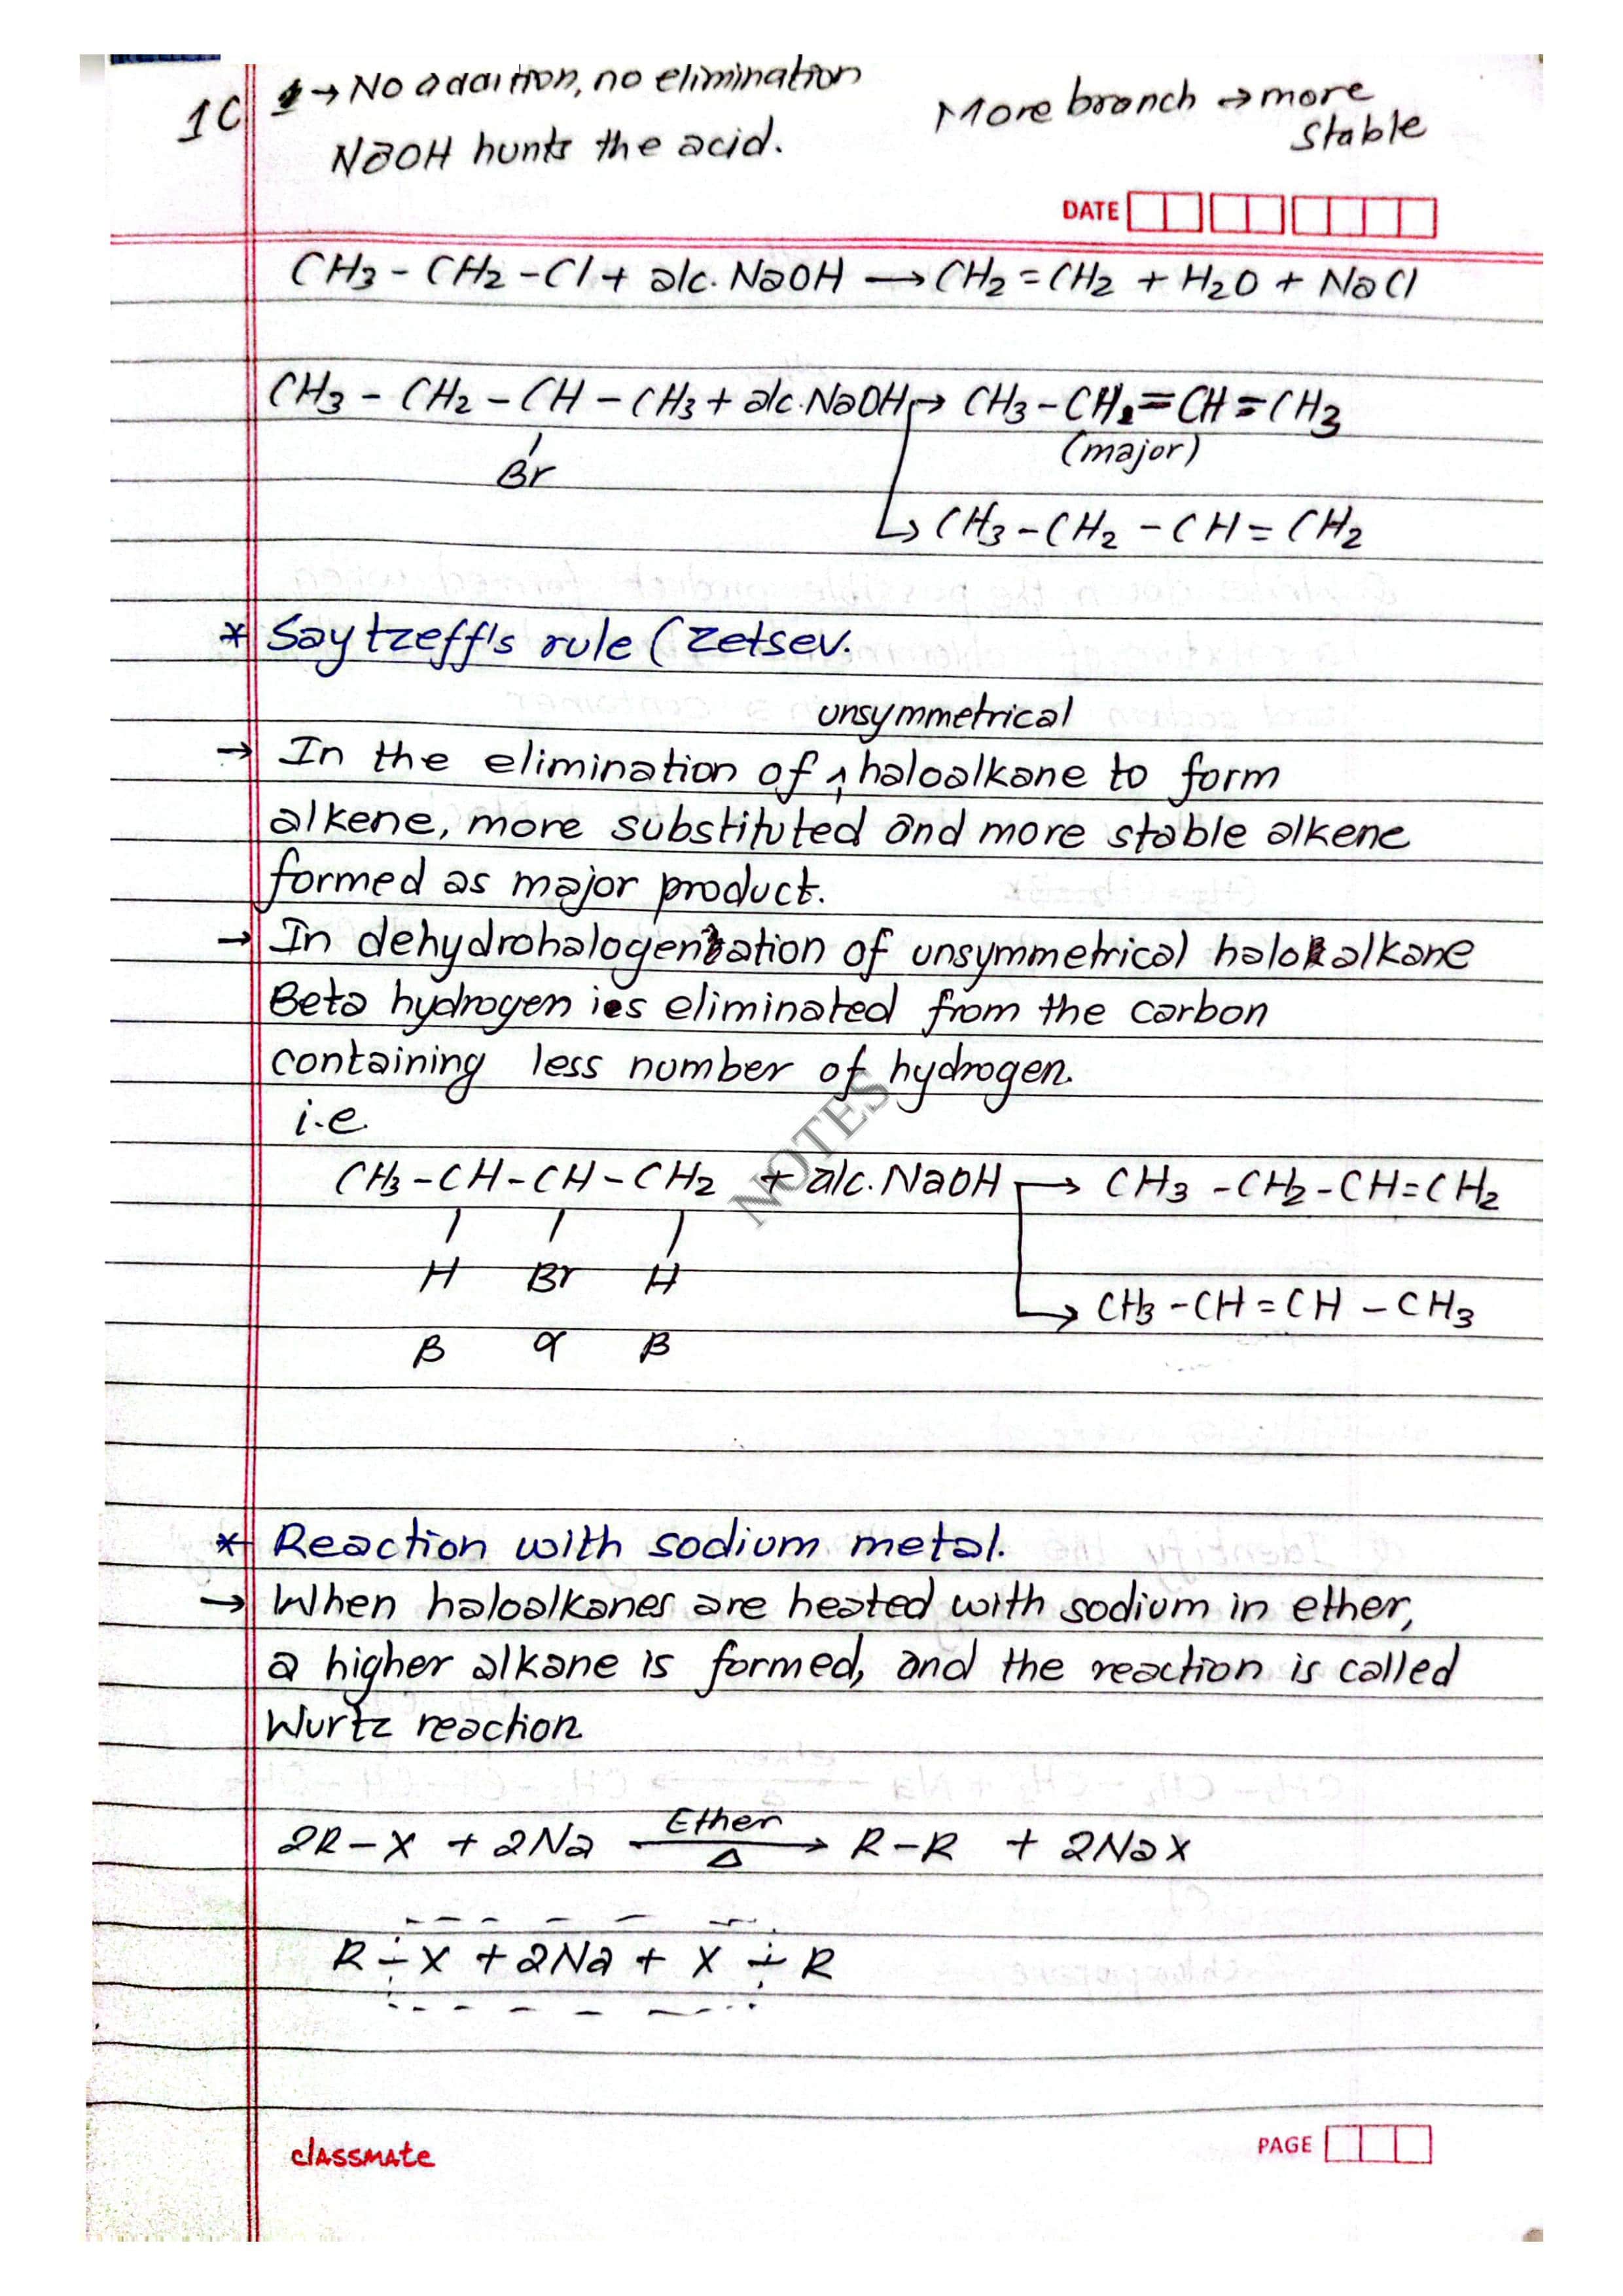 1C 1 → No addition, no elimination
NaOH hunts the acid.
More branch → more
Stable
DATE
CH3 - CH2 - Cl + alc. NaOH → CH2 = CH2 + H2O + NaCl
CH3 - CH2 - CH - CH3 + alc. NaOH → CH3 - CH2 = CH = CH3
(major)
Br
↳ CH3 - CH2 - CH = CH2
* Saytzeff's rule (Zetsev.
unsymmetrical
→ In the elimination of ^ haloalkane to form
alkene, more substituted and more stable alkene
formed as major product.
→ In dehydrohalogenation of unsymmetrical haloalkane
Beta hydrogen is eliminated from the carbon
containing less number of hydrogen.
i.e
CH3 - CH - CH - CH2 + alc. NaOH → CH3 - CH2 - CH = CH2
H Br H
↳ CH3 - CH = CH - CH3
β α β
NOTES
* Reaction with sodium metal.
→ When haloalkanes are heated with sodium in ether,
a higher alkane is formed, and the reaction is called
Wurtz reaction
Ether
2R - X + 2Na → R - R + 2NaX
Δ
R - X + 2Na + X - R
classmate
PAGE